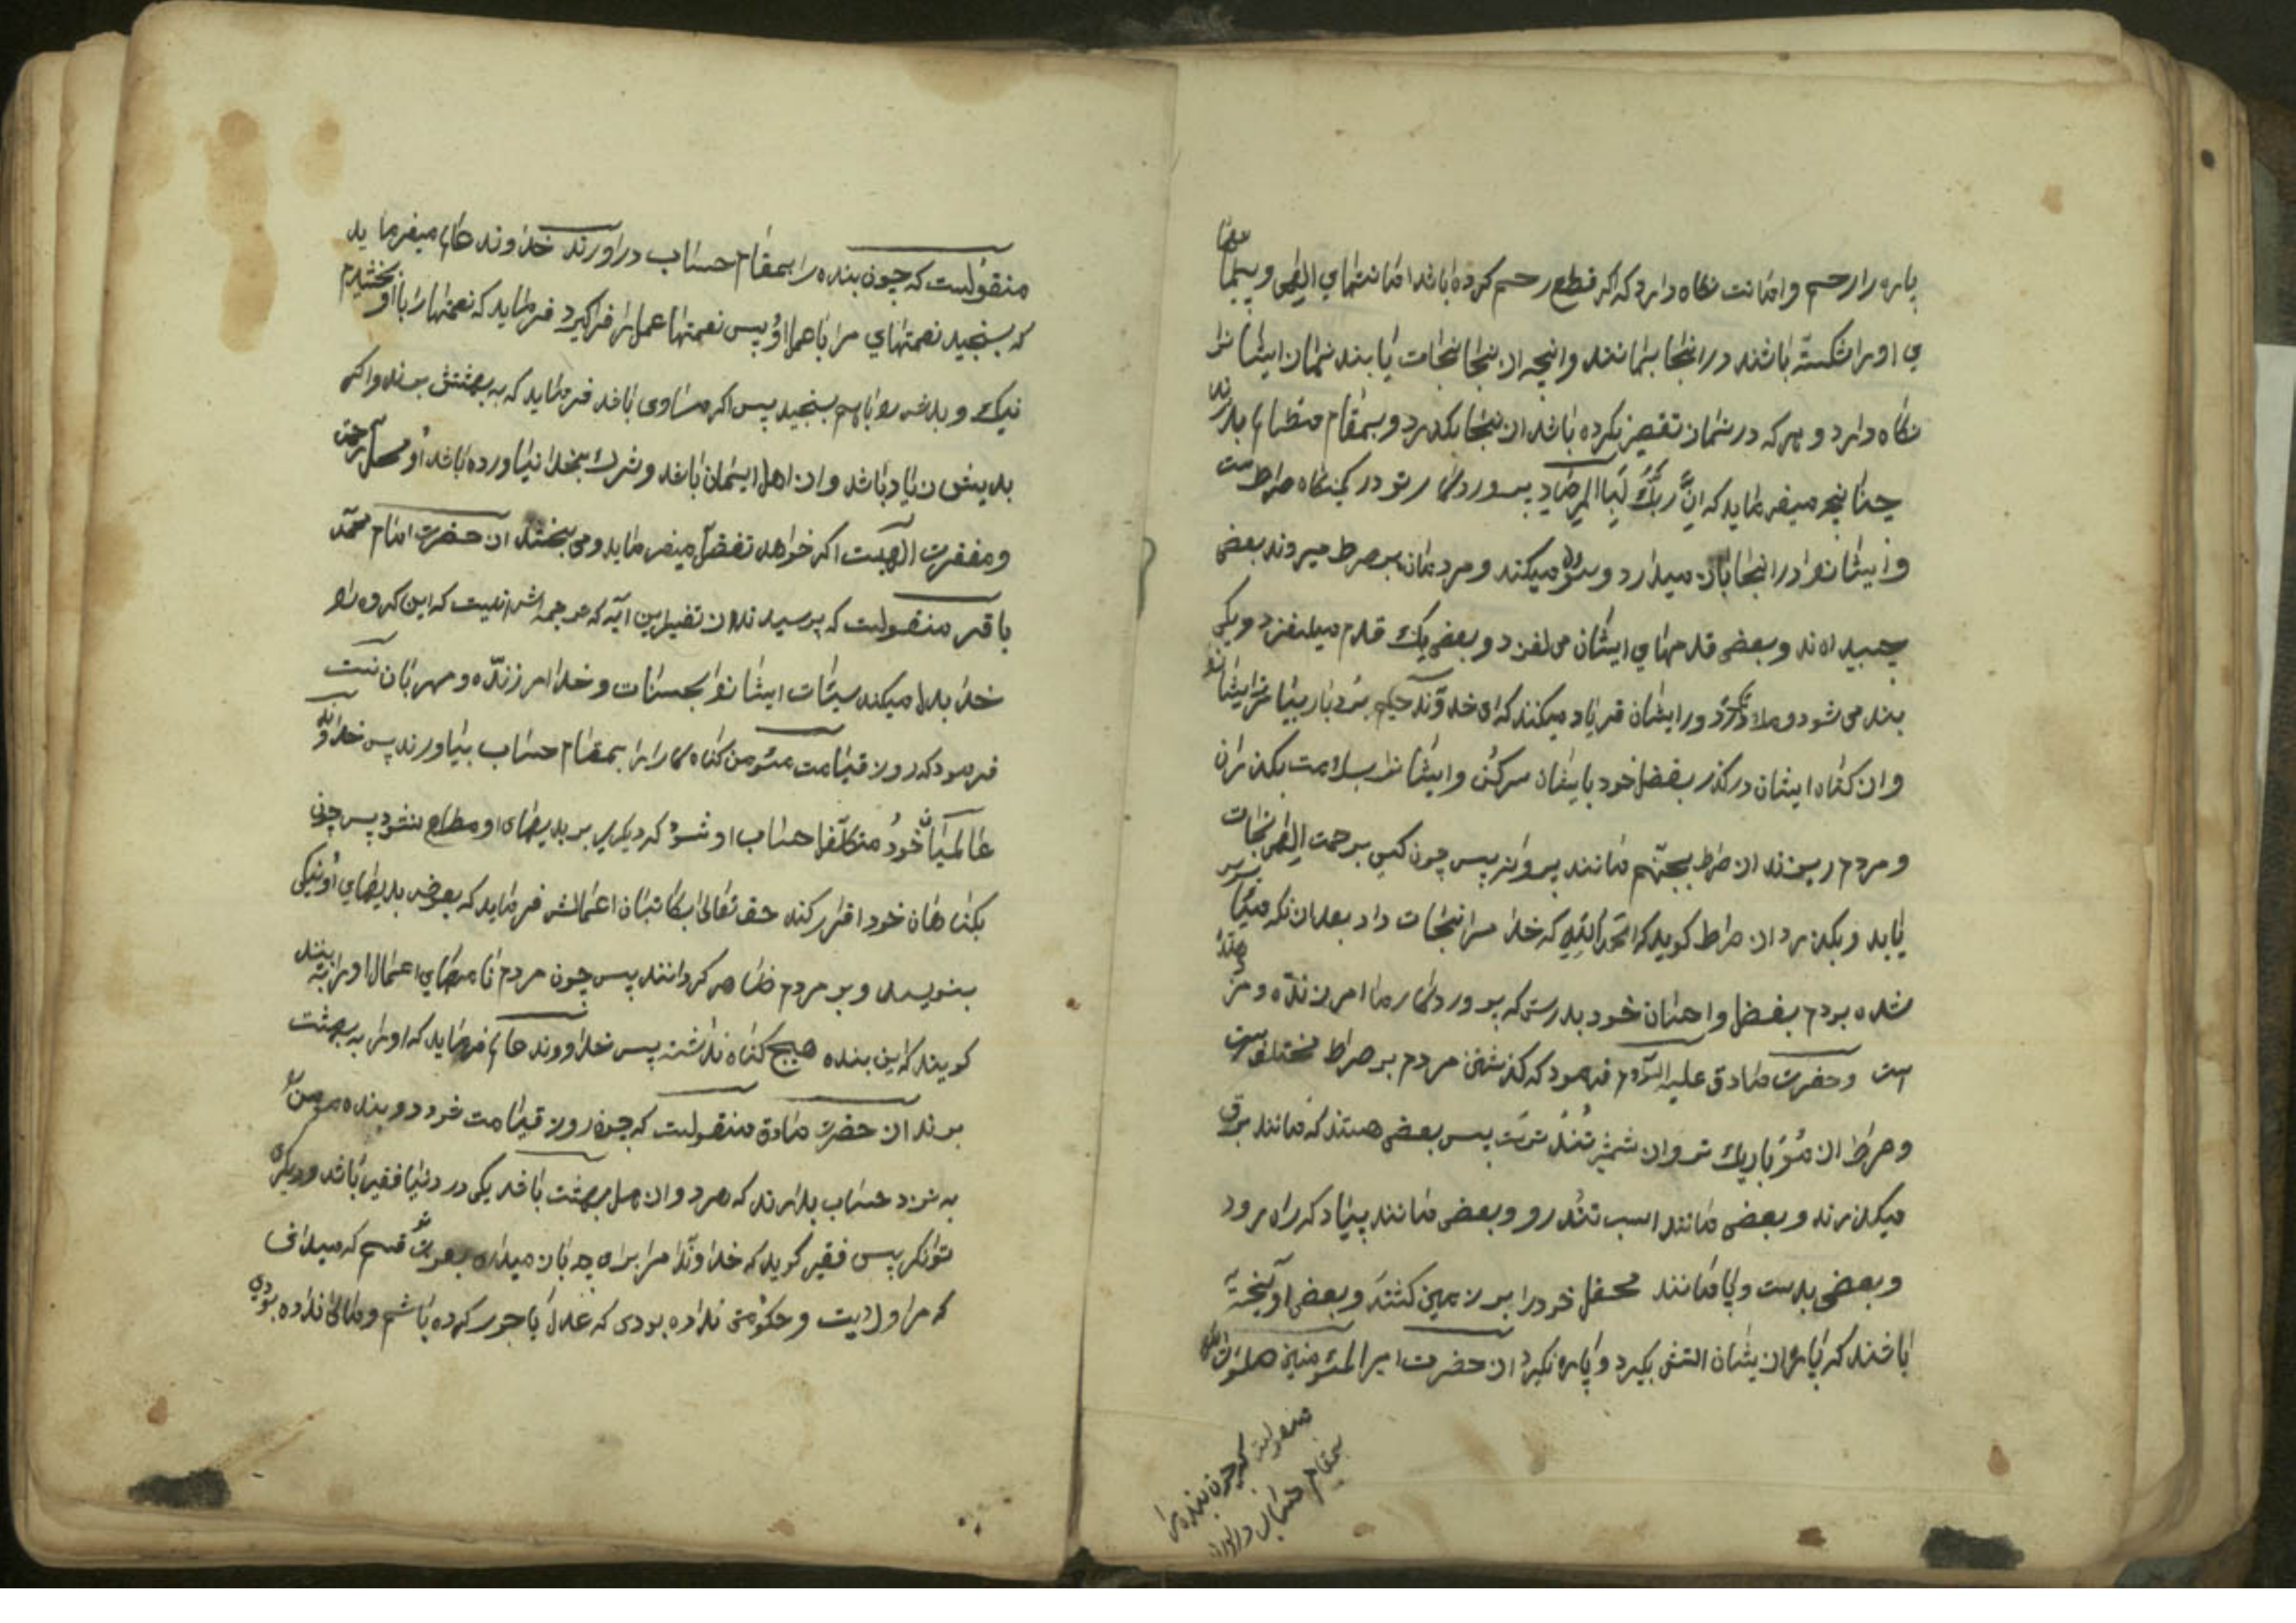 پاره را رحم و امانت نگاه دارد که اگر قطع رحم کرده باشد امانتهای الهی و پیمانها
ی او را شکسته باشند در اینجا بمانند و انچه از اینجا نجات یابند نمازن ایشانرا
نگاه دارد و هر که در نماز تقصیر کرده باشد از اینجا بگذرد و بمقام مظالم بدارند
چنانچه میفرماید که اِنَّ رَبَّكَ لَبِاالمِرصَادِ پروردگار تو در کمینگاه صراط است
و ایشانرا در اینجا باز میدارد و سؤال میکند و مردمان بر صراط میروند بعضی
چسبیده اند و بعضی قدمهای ایشان می لغزد و بعضی یک قدم میلغزد و یکی
بند می شود و ملائکه دور ایشان فریاد میکنند که ای خداوند حکیم بردبار بیامرز ایشانرا
و از گناه ایشان درگذر بفضل خود با ایشان سرکن و ایشانرا بسلامت بگذران
و مردم ریزند از صراط بجهنّم مانند پروانه پس چون کسی برحمت الهی نجات
یابد و بگذرد از صراط گوید که الحمدلله که خدا مرا نجات داد بعد از نکه مأیوس
شده بودم بفضل و احسان خود بدرستی که پروردگار ما امرزنده و مزد دهنده
است و حضرت صادق علیه السلام فرمود که گذشتن مردم بر صراط مختلف است
و صراط از مو باریک تر و از شمشیر تندتر است پس بعضی هستند که مانند برق
میگذرند و بعضی مانند اسب تندرو و بعضی مانند پیاده که راه رود
و بعضی بدست و پا مانند محفل خود را بر زمین کشند و بعضی اویخته
باشند که پاره از یشان اتش بگیرد و پاره نگیرد از حضرت امیر المؤمنین صلوات الله
علیه
منقولست که چون بنده را
بمقام حساب دراورند
منقولست که چون بنده را بمقام حساب دراورند خداوند عالم میفرماید
که بسنجید نعمتهای مرا با عمل او پس نعمتها عمل را فراگیرد فرماید که نعمتها را باو بخشیدم
نیک و بدش را باهم بسنجید پس اگر مساوی باشد فرماید که به بهشتش برند و اگر
بدیش زیاد باشد و از اهل ایمان باشد و شرک بخدا نیاورده باشد او محل رحمت
و مغفرت الهیست اگر خواهد تفضل میفرماید و می بخشد از حضرت امام محمد
باقر منقولست که پرسیدند از تفسیر این آیه که ترجمه اش اینست که این گروه را
خدا بدل میکند سیئات ایشانرا بحسنات و خدا امرزنده و مهربان است
فرمود که روز قیامت مؤمن گناه کار را بمقام حساب بیاورند پس خداوند
عالمیان خود متکفل حساب او شود که دیگری بر بدیهای او مطلع نشود پس چون
بگناهان خود اقرار کند حق تعالی بکاتبان اعمالش فرماید که بعوض بدیهای او نیکی
بنویسند و بر مردم ظاهر گردانند پس چون مردم نامهای اعمال او را ببینند
گویند که این بنده هیچ گناه نداشته پس خداووند عالم فرماید که او را به بهشت
برند از حضرت صادق منقولست که چون روز قیامت شود دو بنده مومن را
به نزد حساب بدارند که هر دو از اهل بهشت باشد یکی در دنیا فقیر باشد و دیگری
توانگر پس فقیر گوید که خداوندا مرا برای چه باز میداری بعزت تو قسم که میدانی
که مرا ولایت و حکومتی نداده بودی که عدل یا جور کرده باشم و مالی نداده بودی